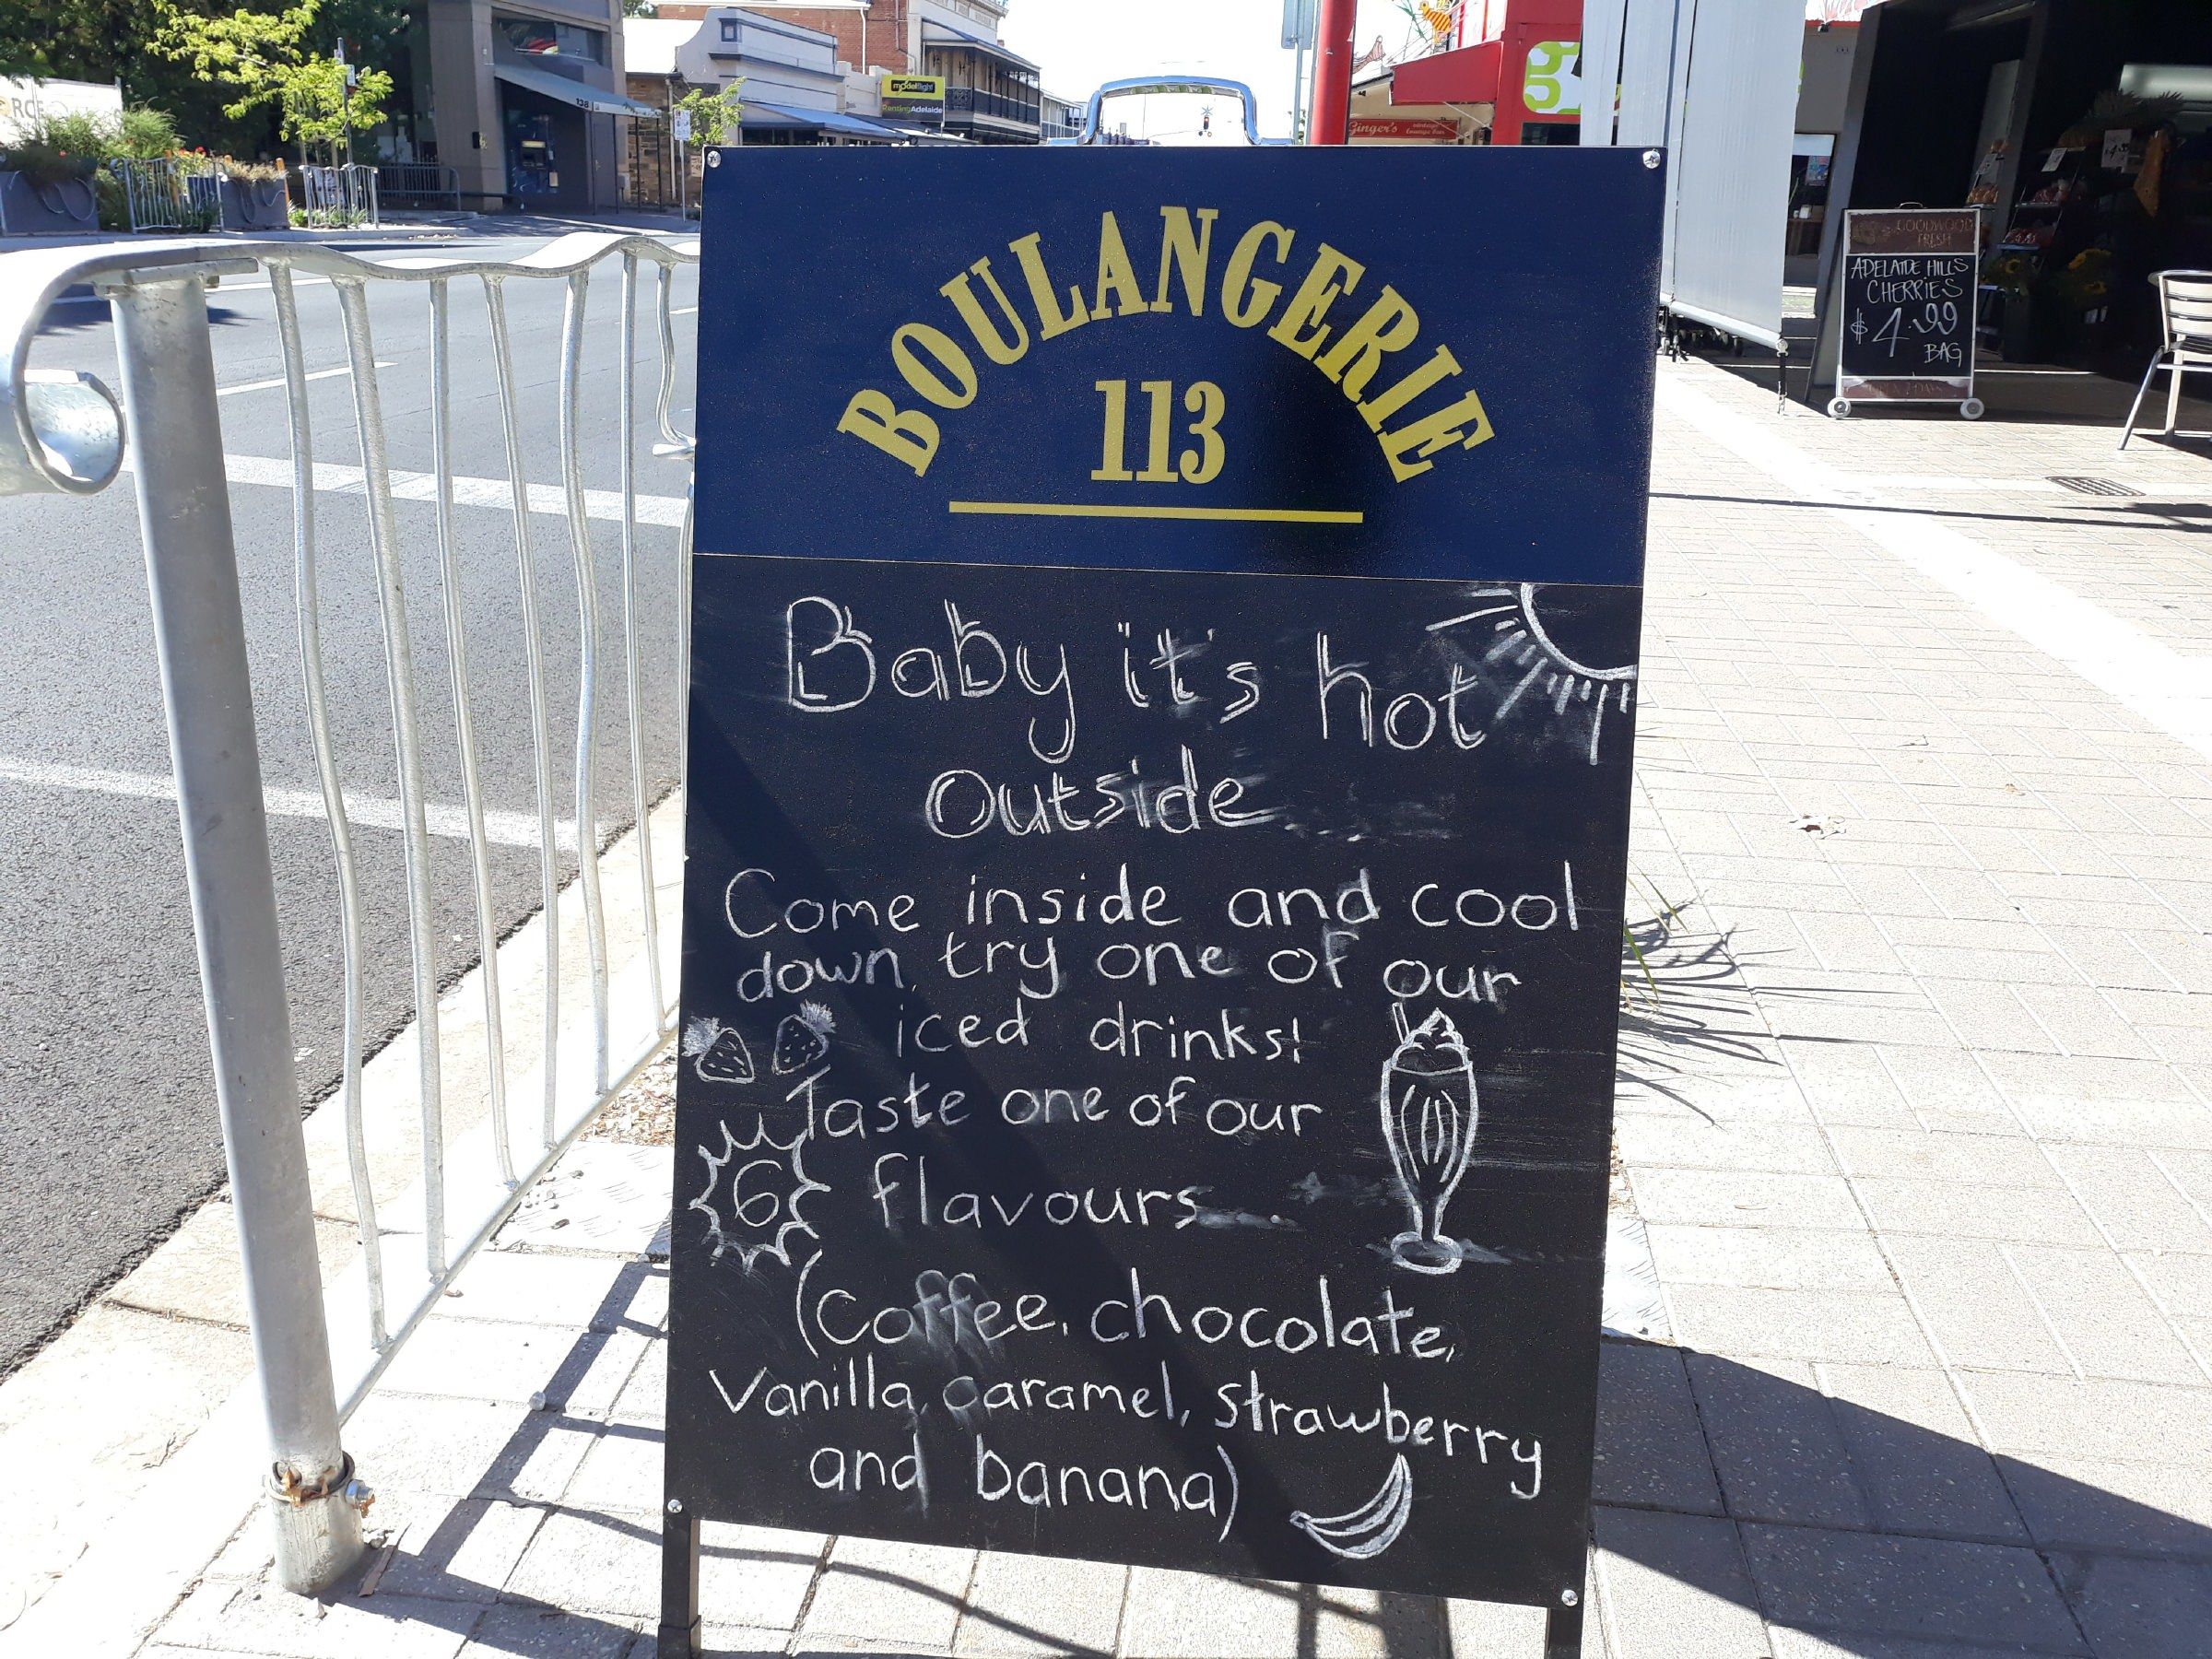 BOULANGERIE
113
Baby it's hot
Outside....
Come inside and cool
down, try one of our
iced drinks!
Taste one of our
6 flavours...
(Coffee, chocolate,
Vanilla, caramel, strawberry
and banana)
GOODWOOD
FRESH
ADELAIDE HILLS
CHERRIES
$4.99
BAG
Ginger's
modelflight
RentingAdelaide
138